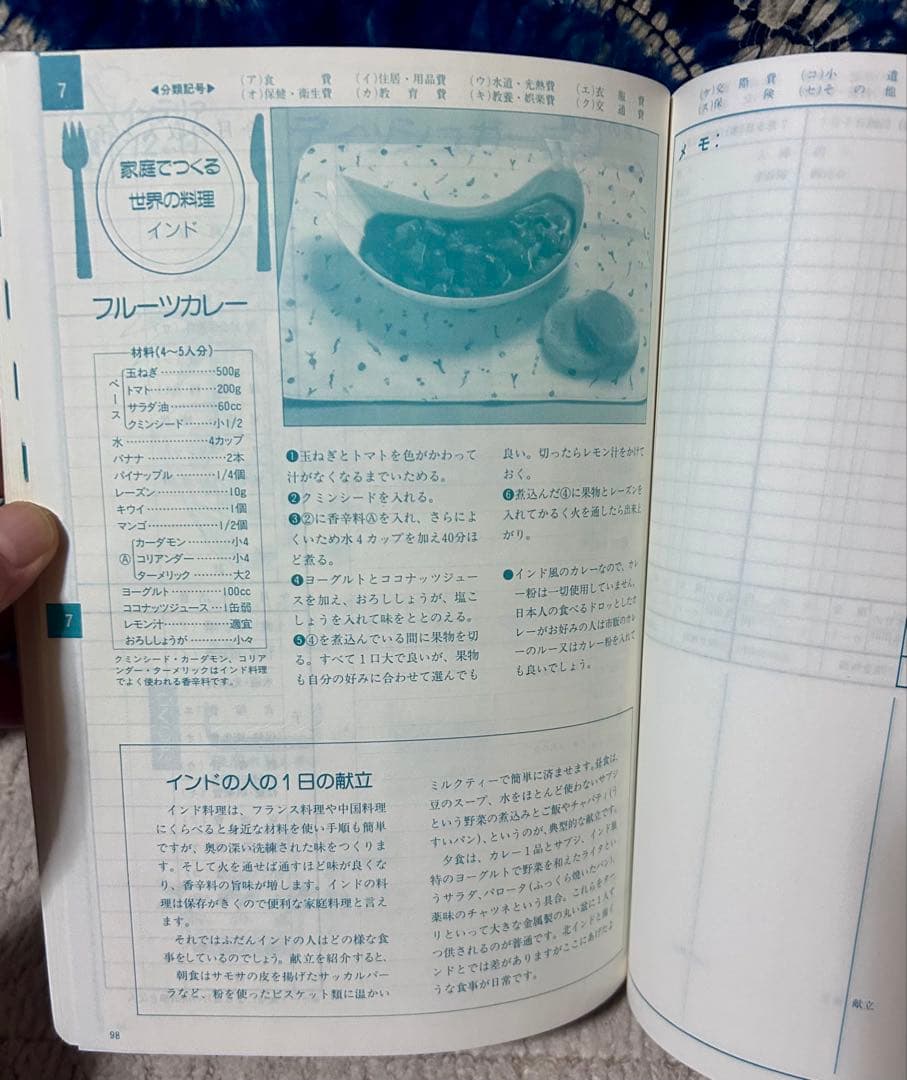 7
◀分類記号▶
(ア)食費 (イ)住居・用品費 (ウ)水道・光熱費 (エ)衣服費
(オ)保健・衛生費 (カ)教育費 (キ)教養・娯楽費 (ク)交通費
家庭でつくる
世界の料理
インド
フルーツカレー
材料(4〜5人分)
ベース
玉ねぎ…………500g
トマト…………200g
サラダ油………60cc
クミンシード……小1/2
水………………4カップ
バナナ…………2本
パイナップル……1/4個
レーズン………10g
キウイ…………1個
マンゴ…………1/2個
Ⓐ
カーダモン……小4
コリアンダー……小4
ターメリック……大2
ヨーグルト………100cc
ココナッツジュース…1缶弱
レモン汁…………適宜
おろししょうが……小々
クミンシード・カーダモン、コリア
ンダー・ターメリックはインド料理
でよく使われる香辛料です。
❶玉ねぎとトマトを色がかわって
汁がなくなるまでいためる。
❷クミンシードを入れる。
❸②に香辛料Ⓐを入れ、さらによ
くいため水4カップを加え40分ほ
ど煮る。
❹ヨーグルトとココナッツジュー
スを加え、おろししょうが、塩こ
しょうを入れて味をととのえる。
❺④を煮込んでいる間に果物を切
る。すべて1口大で良いが、果物
も自分の好みに合わせて選んでも
良い。切ったらレモン汁をかけて
おく。
❻煮込んだ④に果物とレーズンを
入れてかるく火を通したら出来上
がり。
●インド風のカレーなので、カレ
ー粉は一切使用していません。
日本人の食べるドロッとしたカ
レーがお好みの人は市販のカレ
ーのルー又はカレー粉を入れて
も良いでしょう。
7
インドの人の1日の献立
インド料理は、フランス料理や中国料理
にくらべると身近な材料を使い手順も簡単
ですが、奥の深い洗練された味をつくりま
す。そして火を通せば通すほど味が良くな
り、香辛料の旨味が増します。インドの料
理は保存がきくので便利な家庭料理と言え
ます。
それではふだんインドの人はどの様な食
事をしているのでしょう。献立を紹介すると、
朝食はサモサの皮を揚げたサッカルバー
ラなど、粉を使ったビスケット類に温かい
ミルクティーで簡単に済ませます。昼食は、
豆のスープ、水をほとんど使わないサブジ
という野菜の煮込みとご飯やチャパティ(う
すいパン)、というのが、典型的な献立です。
夕食は、カレー1品とサブジ、インド独
特のヨーグルトで野菜を和えたライタとい
うサラダ、パロータ(ふっくら焼いたパン)、
薬味のチャツネという具合。これらをター
リといって大きな金属製の丸い盆に1人ず
つ供されるのが普通です。北インドと南イ
ンドとでは差がありますがここにあげたよ
うな食事が日常です。
98
(ケ)交際費 (コ)小遣
(ス)保険 (セ)その他
メモ:
献立